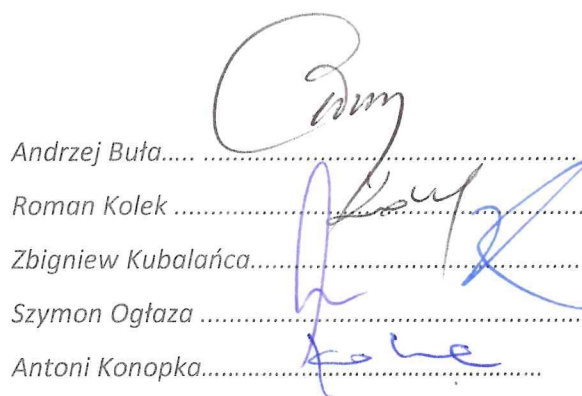 Andrzej Buła..... ........................................................
Roman Kolek ........................................................
Zbigniew Kubalańca........................................................
Szymon Ogłaza ........................................................
Antoni Konopka........................................................